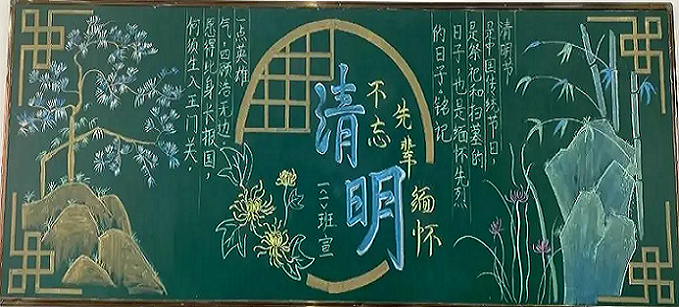 清明节
是中国传统节日，
是祭祀和扫墓的
日子，也是缅怀先烈
的日子。铭记
不忘
先辈
缅怀
清明
班宣
一点英雄
气，回顾浩无边
愿得此身长报国，
何须生入玉门关。